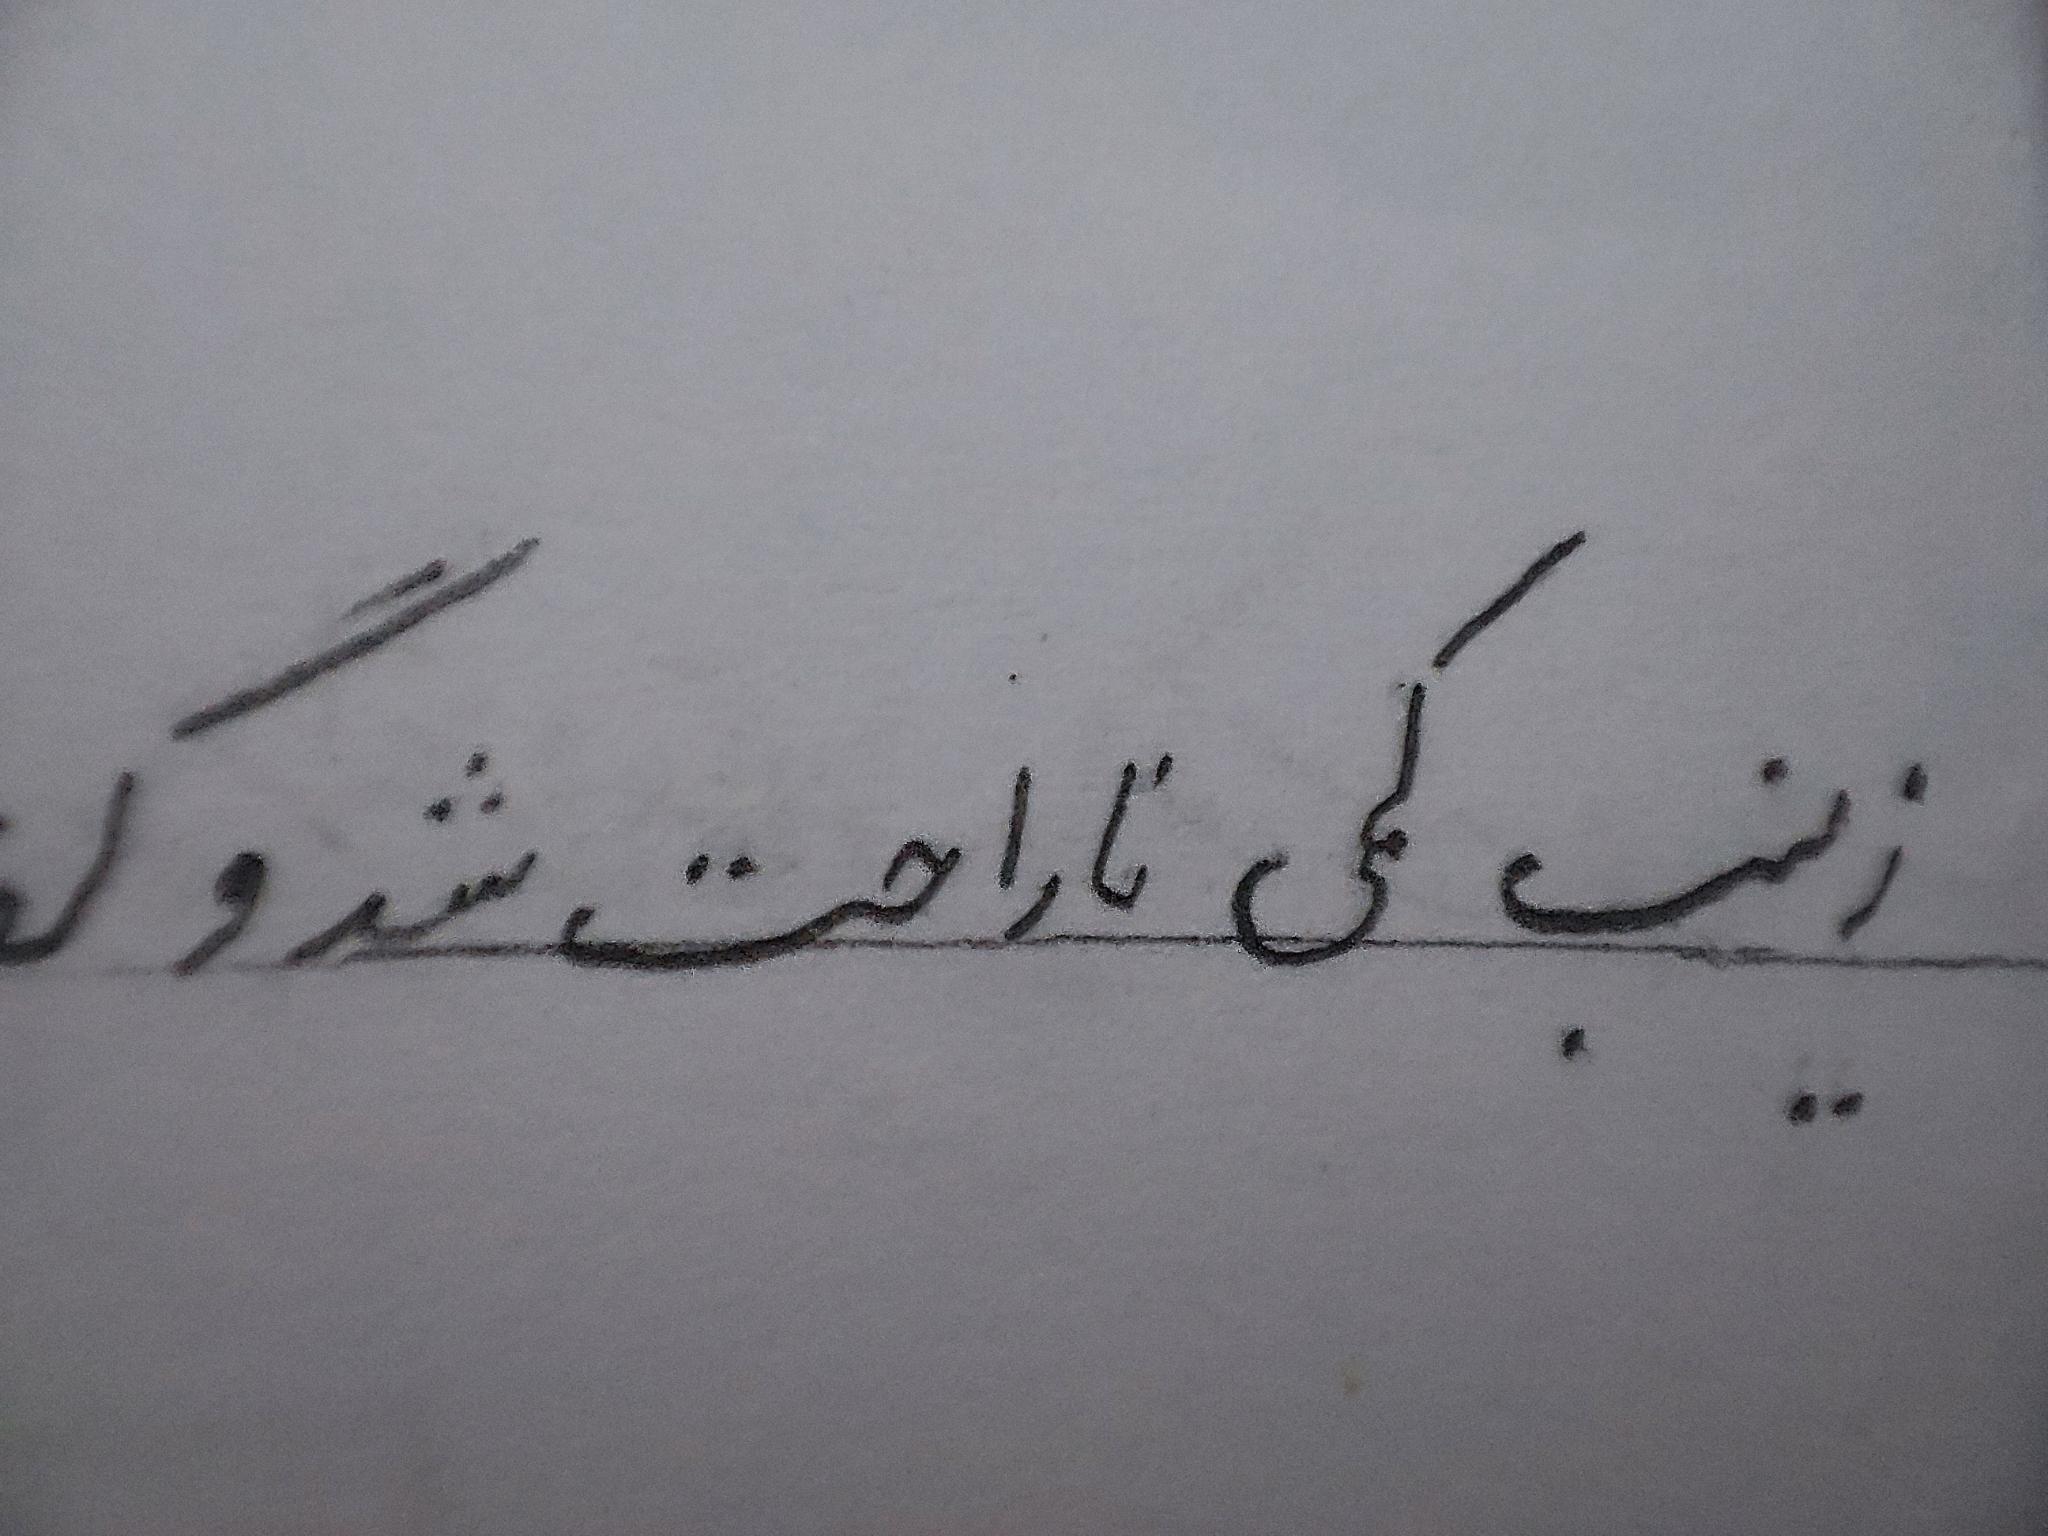 زینب کمی ناراحت شد و